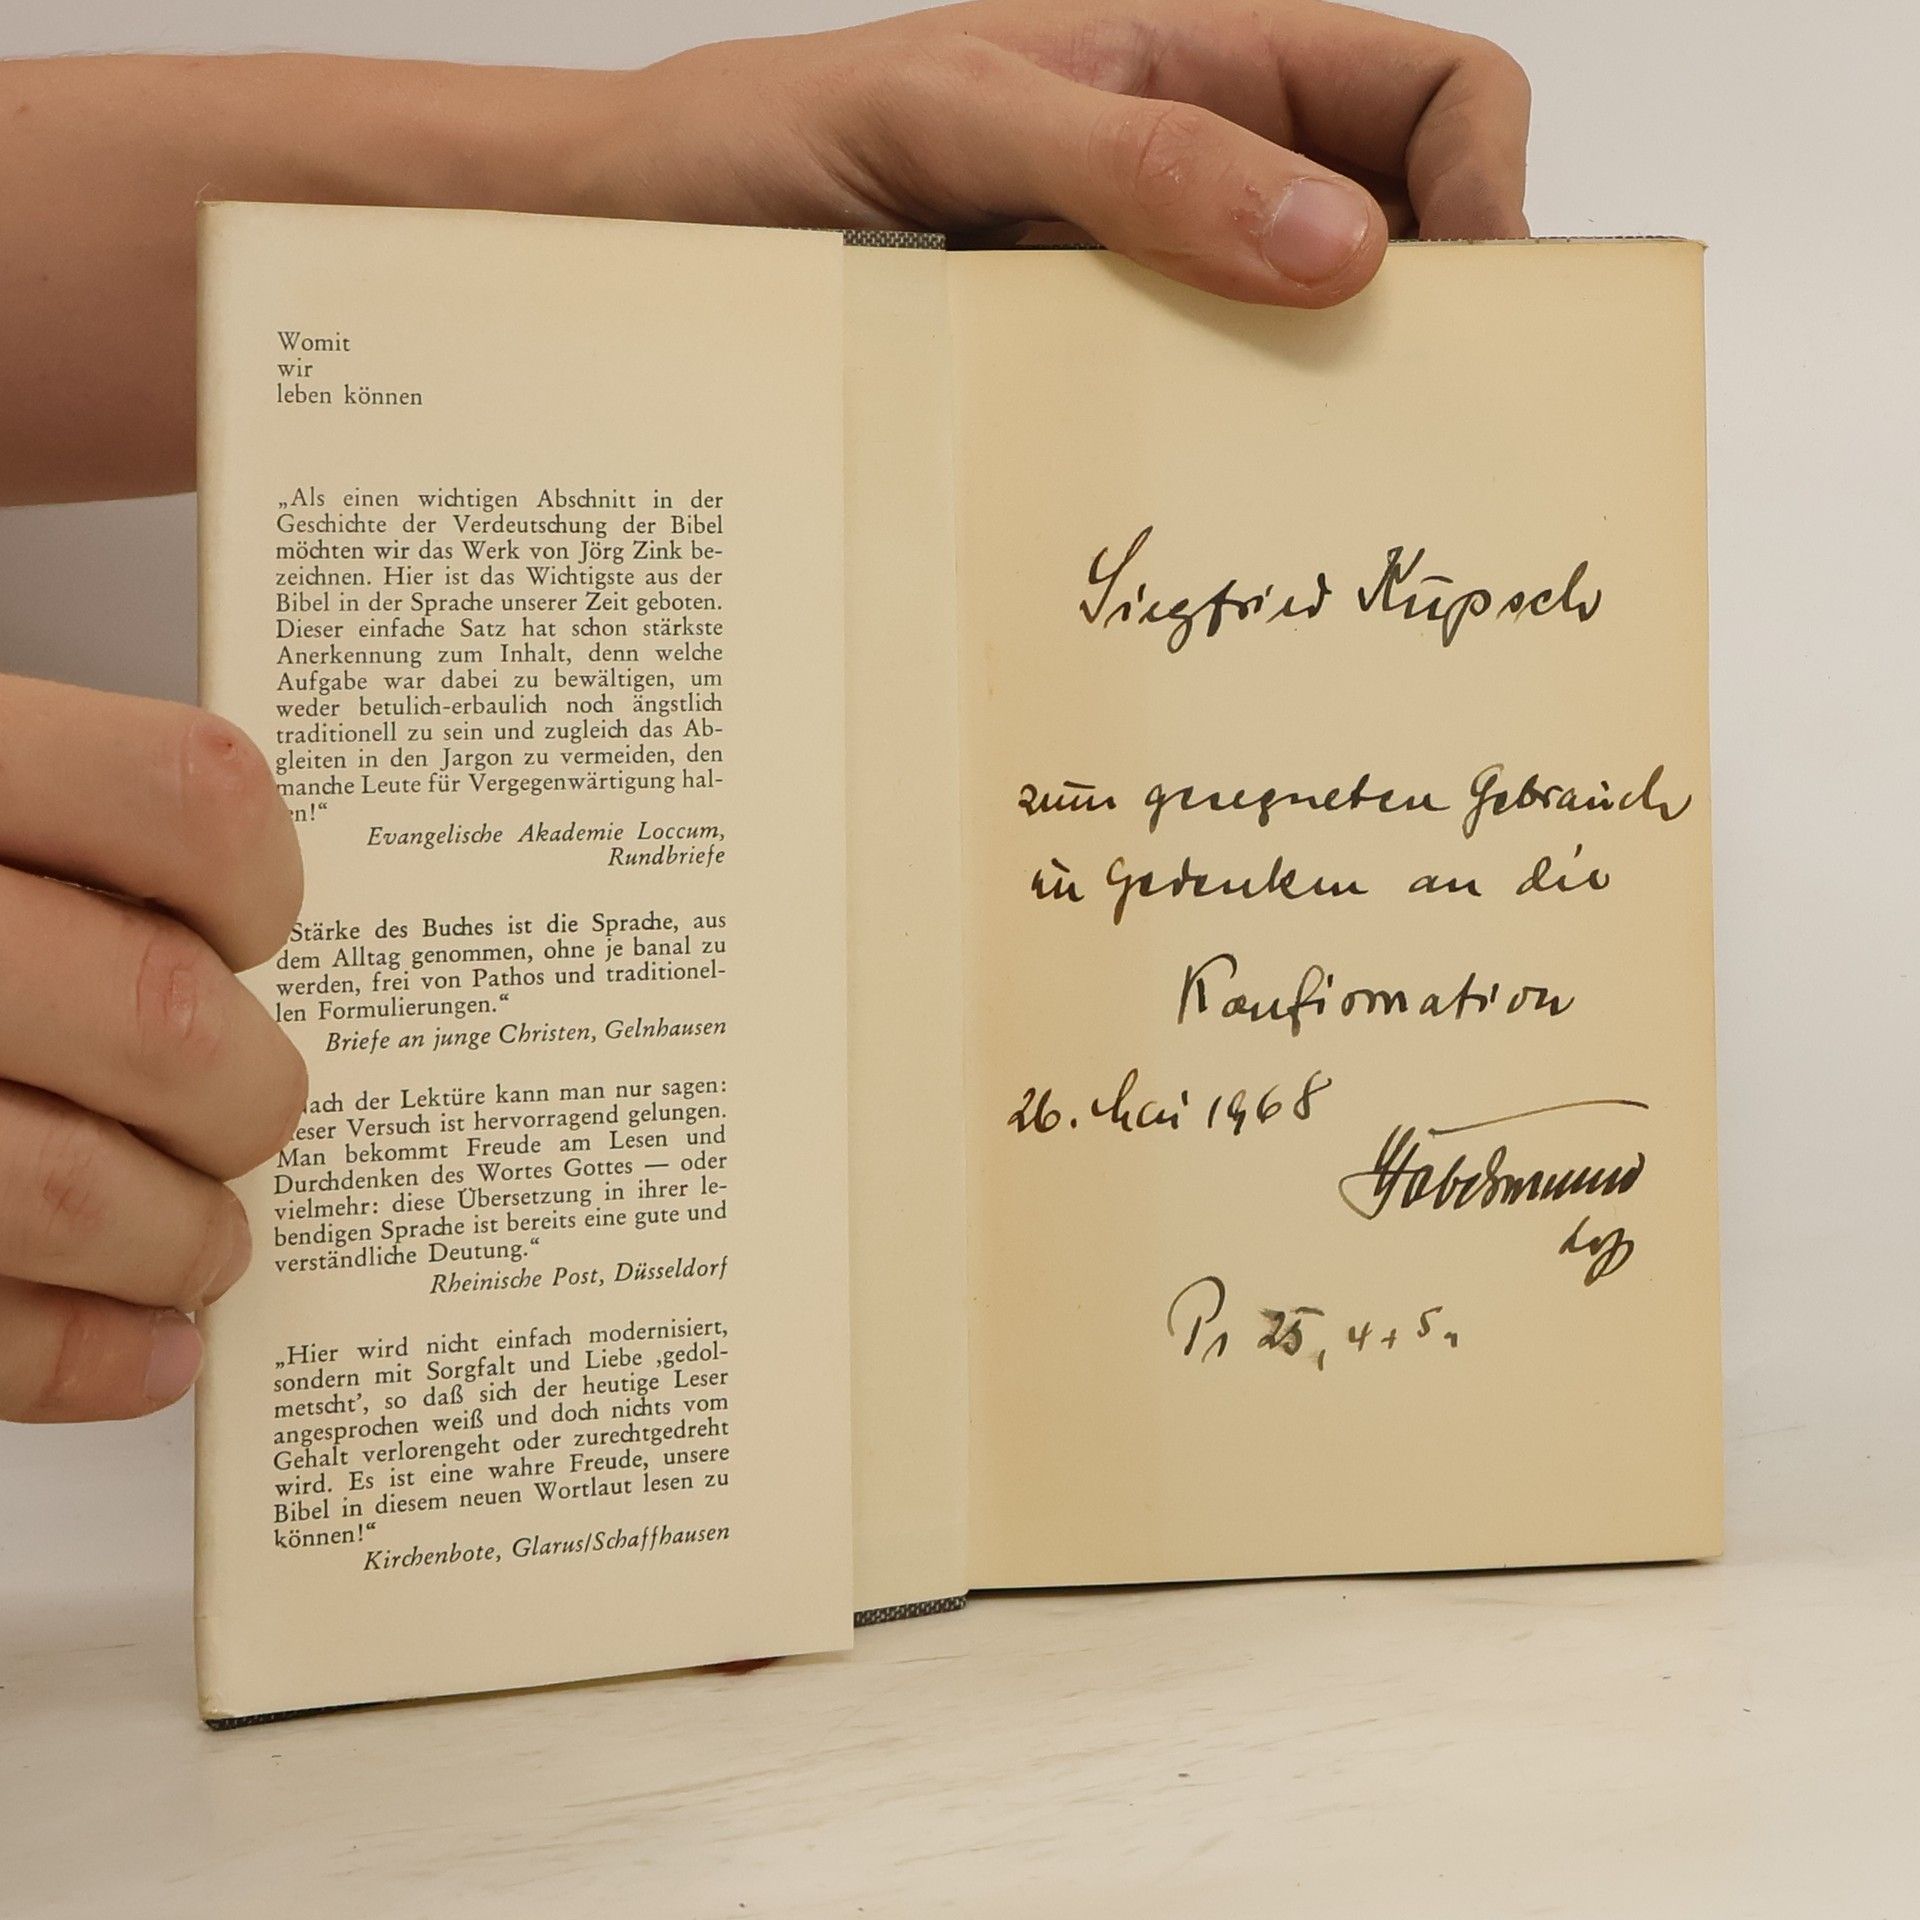 Womit
wir
leben können
„Als einen wichtigen Abschnitt in der
Geschichte der Verdeutschung der Bibel
möchten wir das Werk von Jörg Zink be-
zeichnen. Hier ist das Wichtigste aus der
Bibel in der Sprache unserer Zeit geboten.
Dieser einfache Satz hat schon stärkste
Anerkennung zum Inhalt, denn welche
Aufgabe war dabei zu bewältigen, um
weder betulich-erbaulich noch ängstlich
traditionell zu sein und zugleich das Ab-
gleiten in den Jargon zu vermeiden, den
manche Leute für Vergegenwärtigung hal-
en!“
Evangelische Akademie Loccum,
Rundbriefe
Stärke des Buches ist die Sprache, aus
dem Alltag genommen, ohne je banal zu
werden, frei von Pathos und traditionel-
len Formulierungen.“
Briefe an junge Christen, Gelnhausen
ach der Lektüre kann man nur sagen:
ieser Versuch ist hervorragend gelungen.
Man bekommt Freude am Lesen und
Durchdenken des Wortes Gottes — oder
vielmehr: diese Übersetzung in ihrer le-
bendigen Sprache ist bereits eine gute und
verständliche Deutung.“
Rheinische Post, Düsseldorf
„Hier wird nicht einfach modernisiert,
sondern mit Sorgfalt und Liebe ‚gedol-
metscht’, so daß sich der heutige Leser
angesprochen weiß und doch nichts vom
Gehalt verlorengeht oder zurechtgedreht
wird. Es ist eine wahre Freude, unsere
Bibel in diesem neuen Wortlaut lesen zu
können!“
Kirchenbote, Glarus/Schaffhausen
Siegfried Kupsch
zum gesegneten Gebrauch
im Gedenken an die
Konfirmation
26. Mai 1968
Ps 25, 4 + 5